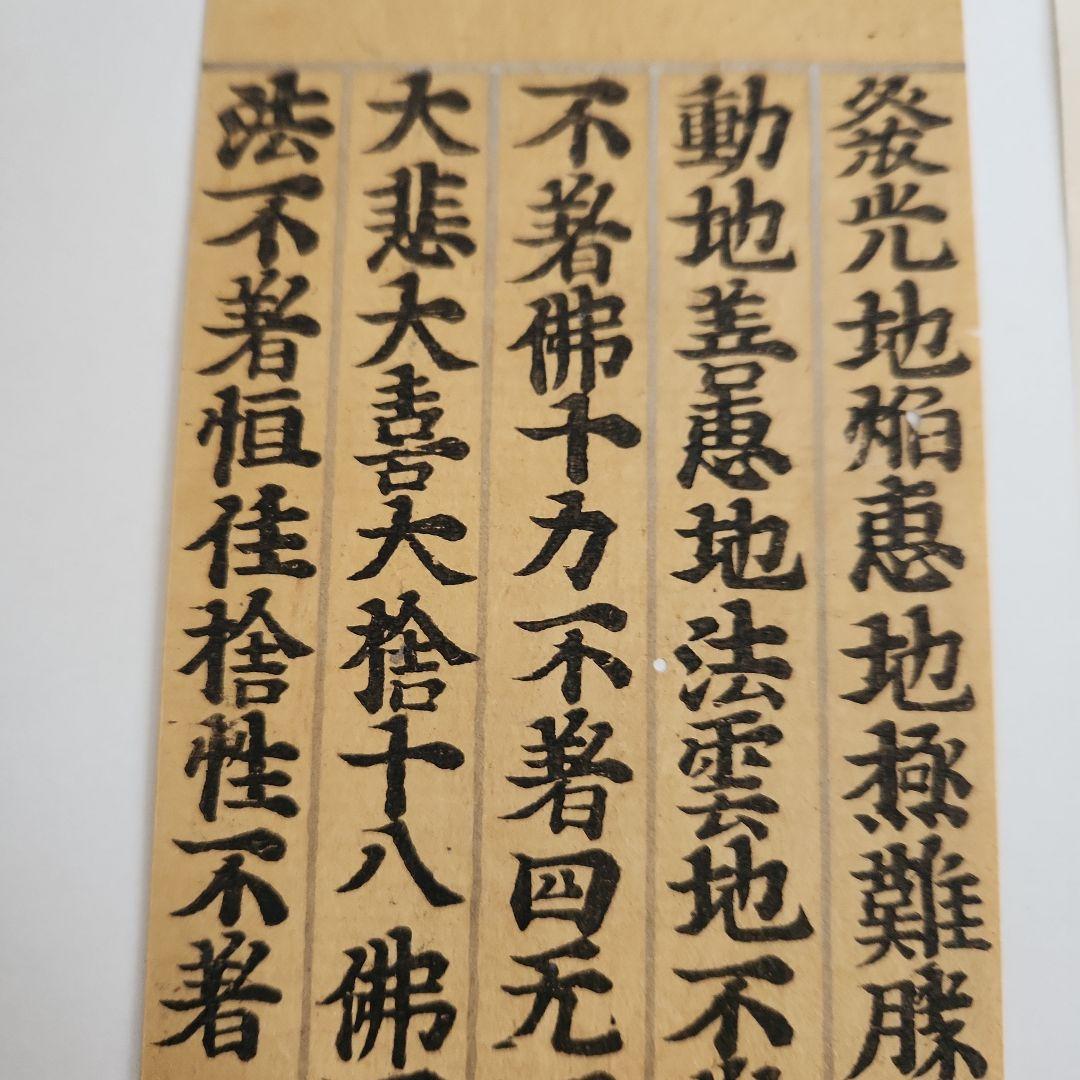 發光地焰惠地極難勝
動地善惠地法雲地不
不著佛十力不著四无
大悲大喜大捨十八佛
法不著恒住捨性不著